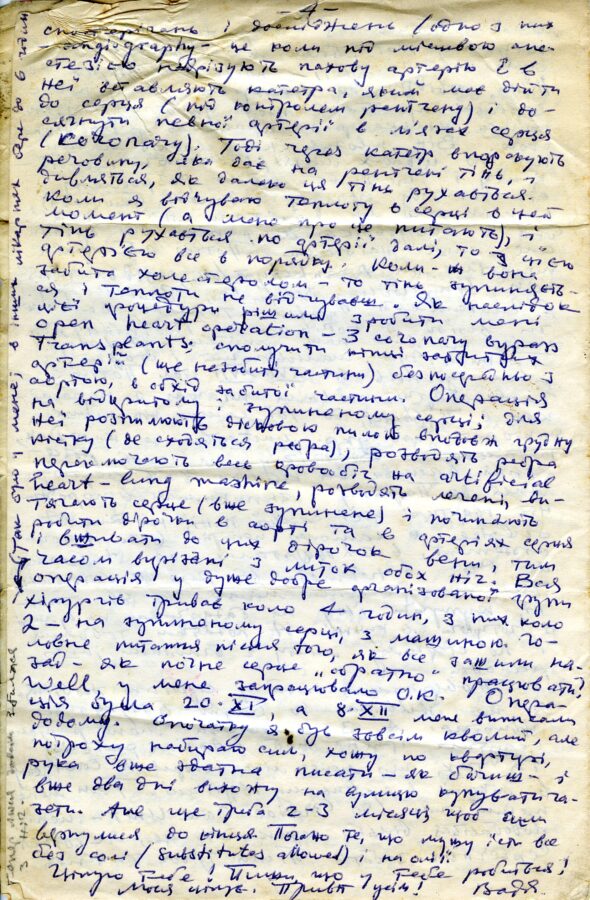 -4-
спостережень і досліджень (одно з них
- angiography - це коли під місцевою ане-
стезією надрізують пахову артерію й в
неї вставляють катетра, який має дійти
до серця (під контролем рентгену) і до-
сягнути певної артерії в м'язах серця
(коронару). Тоді через катетр впорскують
речовину, яка дає на рентгені тінь, і
дивляться, як далеко ця тінь рухається.
Коли я відчуваю теплоту в серці в цей
момент (а мене про це питають), і
тінь рухається по артерії далі, то з цією
артерією все в порядку. Коли-ж вона
забита холестеролом - то тінь зупиняєть-
ся і теплоти не відчуваєш. Як наслідок
цієї процедури рішили зробити мені
open heart operation - 3 coronary bypass
transplants, сполучити кінці забитих
артерій (ще незабиті частини) безпосередньо з
аортою, в обхід забитої частини. Операція
на відкритому і зупиненому серці; для
неї розпилюють дисковою пилою вподовж грудну
кістку (де сходяться ребра), розводять ребра
переключають весь кровообіг на artificial
heart-lung mashine, розводять легені, ви-
тягають серце (вже зупинене) і починають
робити дірочки в аорті та в артеріях серця
і вшивати до цих дірочок вени, тим
часом вирізані з литок обох ніг. Вся
операція у дуже добре організованої групи
хірургів триває коло 4 годин, з них коло
2 - на зупиненому серці, з машиною. Го-
ловне питання після того, як все зашили на-
зад - як почне серце „обратно" працювати?
Well, у мене запрацювало О.К. Опера-
ція була 20.XI, а 8.XII мене виписали
додому. Спочатку я був зовсім кволий, але
потроху набираю сил, хожу по квартирі,
рука вже здатна писати - як бачиш - і
вже два дні вихожу на вулицю купувати га-
зети. Але ще треба 2-3 місяці щоб сили
вернулися до кінця. Погано те, що мушу їсти все
без солі (substitutes allowed) і на олії.
Цілую Тебе! Пиши, що у Тебе робиться!
Моя цілує. Привіт усім! Вадя.
(Так було у мене; в інших лікарнях до 6 годин
з ніг.